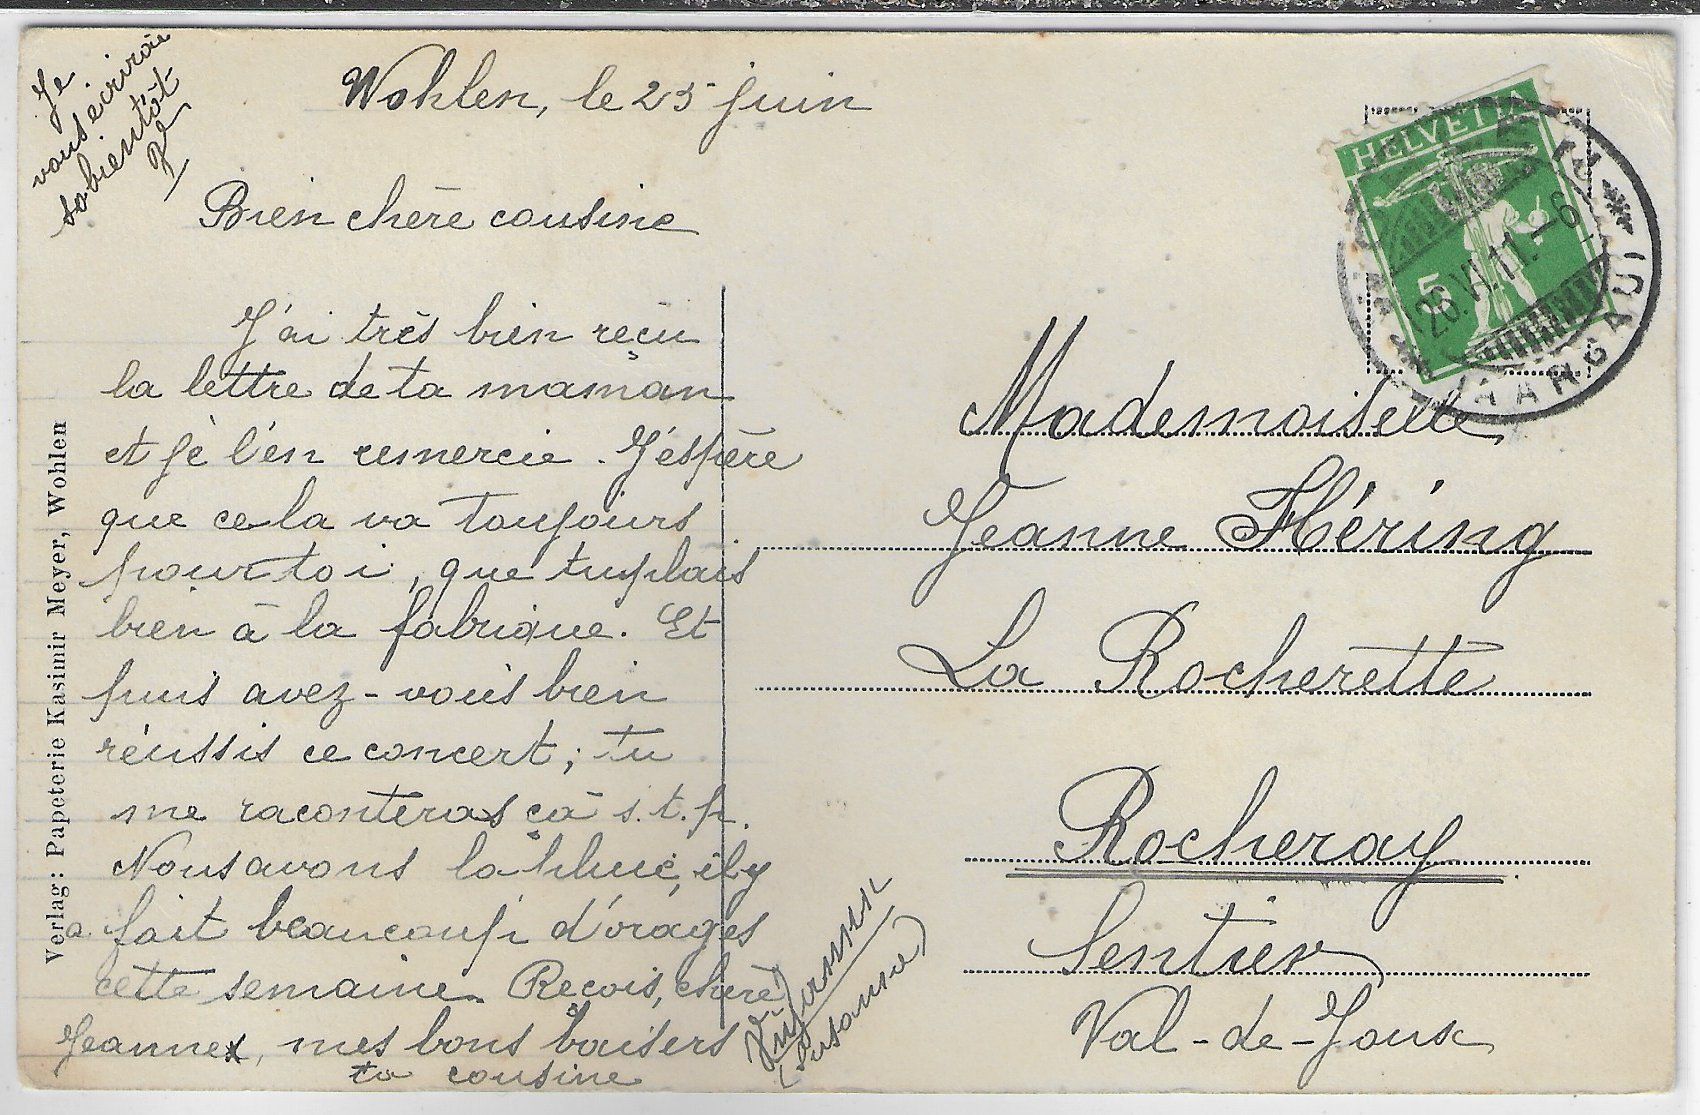 Je
vous écrirai
bientôt
Wohlen, le 25 juin
Bien chère cousine
J'ai très bien reçu
la lettre de ta maman
et je l'en remercie. J'espère
que cela va toujours
pour toi, que tu plais
bien à la fabrique. Et
puis avez-vous bien
réussis ce concert; tu
me raconteras ça s.t.p.
Nous avons la pluie, il y
a fait beaucoup d'orages
cette semaine. Reçois, chère
Jeanne, mes bons baisers
ta cousine
(Susanne)
Verlag: Papeterie Kasimir Meyer, Wohlen
HELVETIA
5
26.VI.11.-6
(AARGAU)
Mademoiselle
Jeanne Héring
La Rocherette
Rocheray
Sentier
Val-de-Joux